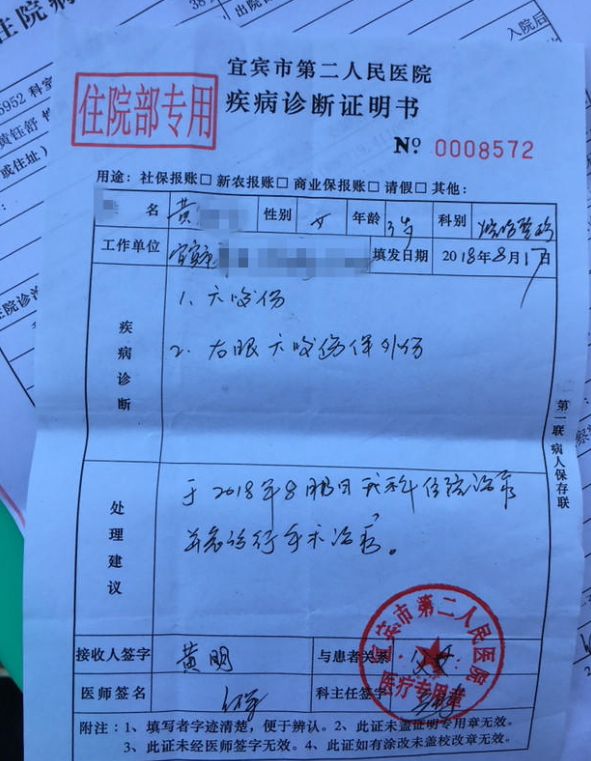 住院病
出院
入院后
5952 科室
黄钰舒
或住址)
住院诊
宜宾市第二人民医院
住院部专用
疾病诊断证明书
№ 0008572
用途：社保报账□ 新农报账□ 商业保报账□ 请假□ 其他：
名 黄 性别 女 年龄 3岁 科别
工作单位 宜宾 填发日期 2018年8月17日
疾病诊断
1、犬咬伤
2、右眼犬咬伤
处理建议
于2018年8月 日我科住院治疗
并急诊行手术治疗。
第一联 病人保存联
接收人签字 黄明 与患者关系 父女
医师签名 科主任签字
宜宾市第二人民医院
医疗专用章
附注：1、填写者字迹清楚，便于辨认。2、此证未盖证明专用章无效。
3、此证未经医师签字无效。4、此证如有涂改未盖校改章无效。